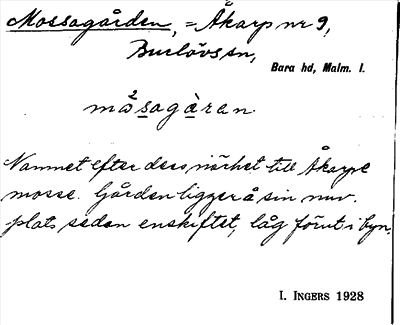 Mossagården, = Åkarp nr 9,
Burlövs sn,
Bara hd, Malm. l.
må²sagàren
Namnet efter dess närhet till Åkarps
mosse. Gården ligger å sin nuv.
plats sedan enskiftet, låg förut i byn.
I. INGERS 1928